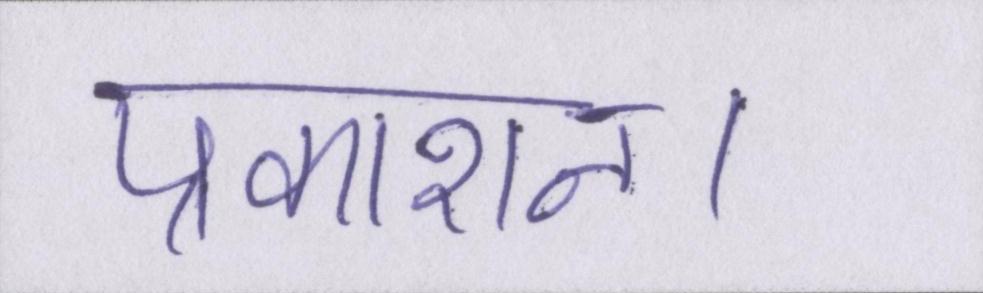 प्रकाशन।